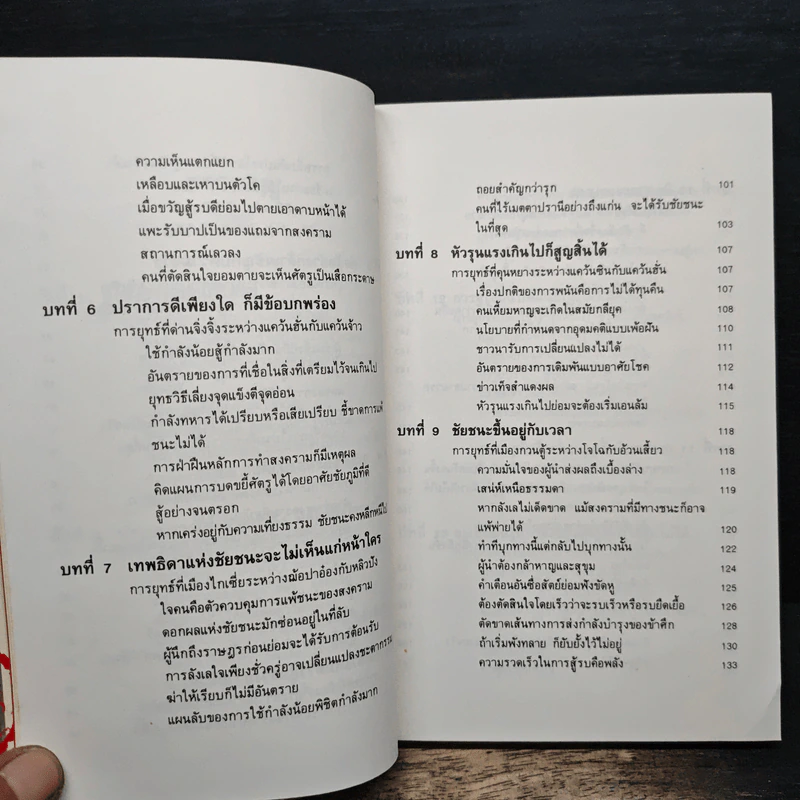 ความเห็นแตกแยก
เหลือบและเหาบนตัวโค
เมื่อขวัญสู้รบดีย่อมไปตายเอาดาบหน้าได้
แพะรับบาปเป็นของแถมจากสงคราม
สถานการณ์เลวลง
คนที่ตัดสินใจยอมตายจะเห็นศัตรูเป็นเสือกระดาษ
บทที่ 6 ปราการดีเพียงใด ก็มีข้อบกพร่อง
การยุทธ์ที่ด่านจิ่งจิ้งระหว่างแคว้นฮั่นกับแคว้นจ้าว
ใช้กำลังน้อยสู้กำลังมาก
อันตรายของการที่เชื่อในสิ่งที่เตรียมไว้จนเกินไป
ยุทธวิธีเลี่ยงจุดแข็งตีจุดอ่อน
กำลังทหารได้เปรียบหรือเสียเปรียบ ชี้ขาดการแพ้
ชนะไม่ได้
การฝ่าฝืนหลักการทำสงครามก็มีเหตุผล
คิดแผนการบดขยี้ศัตรูได้โดยอาศัยชัยภูมิที่ดี
สู้อย่างจนตรอก
หากเคร่งอยู่กับความเที่ยงธรรม ชัยชนะคงหลีกหนีไป
บทที่ 7 เทพธิดาแห่งชัยชนะจะไม่เห็นแก่หน้าใคร
การยุทธ์ที่เมืองไกเซี่ยระหว่างฌ้อปาอ๋องกับหลิวปัง
ใจคนคือตัวควบคุมการแพ้ชนะของสงคราม
ดอกผลแห่งชัยชนะมักซ่อนอยู่ในที่ลับ
ผู้นึกถึงราษฎรก่อนย่อมจะได้รับการต้อนรับ
การลังเลใจเพียงชั่วครู่อาจเปลี่ยนแปลงชะตากรรม
ฆ่าให้เรียบก็ไม่มีอันตราย
แผนลับของการใช้กำลังน้อยพิชิตกำลังมาก
ถอยสำคัญกว่ารุก 101
คนที่ไร้เมตตาปรานีอย่างถึงแก่น จะได้รับชัยชนะ
ในที่สุด 103
บทที่ 8 หัวรุนแรงเกินไปก็สูญสิ้นได้ 107
การยุทธ์ที่คุนหยางระหว่างแคว้นซินกับแคว้นฮั่น 107
เรื่องปกติของการพนันคือการไม่ได้ทุนคืน 107
คนเหี้ยมหาญจะเกิดในสมัยกลียุค 108
นโยบายที่กำหนดจากอุดมคติแบบเพ้อฝัน 110
ชาวนารับการเปลี่ยนแปลงไม่ได้ 111
อันตรายของการเดิมพันแบบอาศัยโชค 112
ข่าวเท็จสำแดงผล 114
หัวรุนแรงเกินไปย่อมจะต้องเริ่มเอนล้ม 115
บทที่ 9 ชัยชนะขึ้นอยู่กับเวลา 118
การยุทธ์ที่เมืองกวนตู้ระหว่างโจโฉกับอ้วนเสี้ยว 118
ความมั่นใจของผู้นำส่งผลถึงเบื้องล่าง 118
เสน่ห์เหนือธรรมดา 119
หากลังเลไม่เด็ดขาด แม้สงครามที่มีทางชนะก็อาจ
แพ้พ่ายได้ 120
ทำทีบุกทางนี้แต่กลับไปบุกทางนั้น 122
ผู้นำต้องกล้าหาญและสุขุม 124
คำเตือนอันซื่อสัตย์ย่อมฟังขัดหู 125
ต้องตัดสินใจโดยเร็วว่าจะรบเร็วหรือรบยืดเยื้อ 126
ตัดขาดเส้นทางการส่งกำลังบำรุงของข้าศึก 128
ถ้าเริ่มพังทลาย ก็ยับยั้งไว้ไม่อยู่ 130
ความรวดเร็วในการสู้รบคือพลัง 133